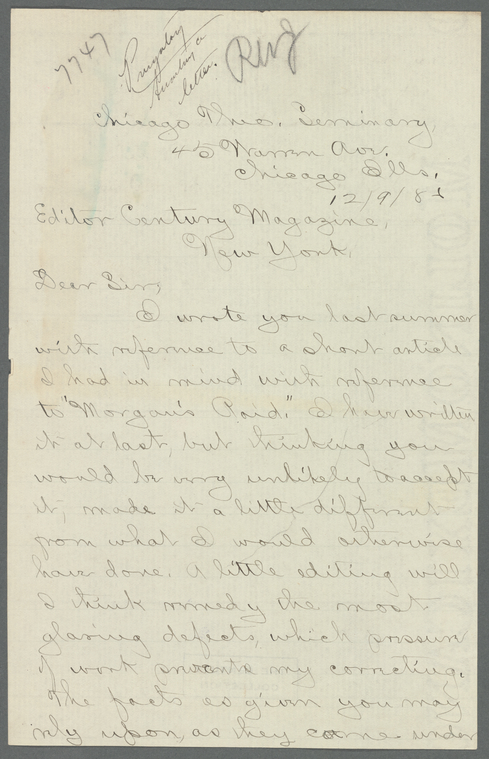 7747
letter.
RWJ
Chicago Theo. Seminary,
45 Warren Ave.
Chicago Ills.
12/9/85
Editor Century Magazine,
New York,
Dear Sir,
I wrote you last summer
with reference to a short article
I had in mind with reference
to "Morgan's Raid." I have written
it at last, but thinking you
would be very unlikely to accept
it, made it a little different
from what I would otherwise
have done. A little editing will
I think remedy the most
glaring defects, which pressure
of work prevents my correcting.
The facts as given you may
rely upon, as they came under